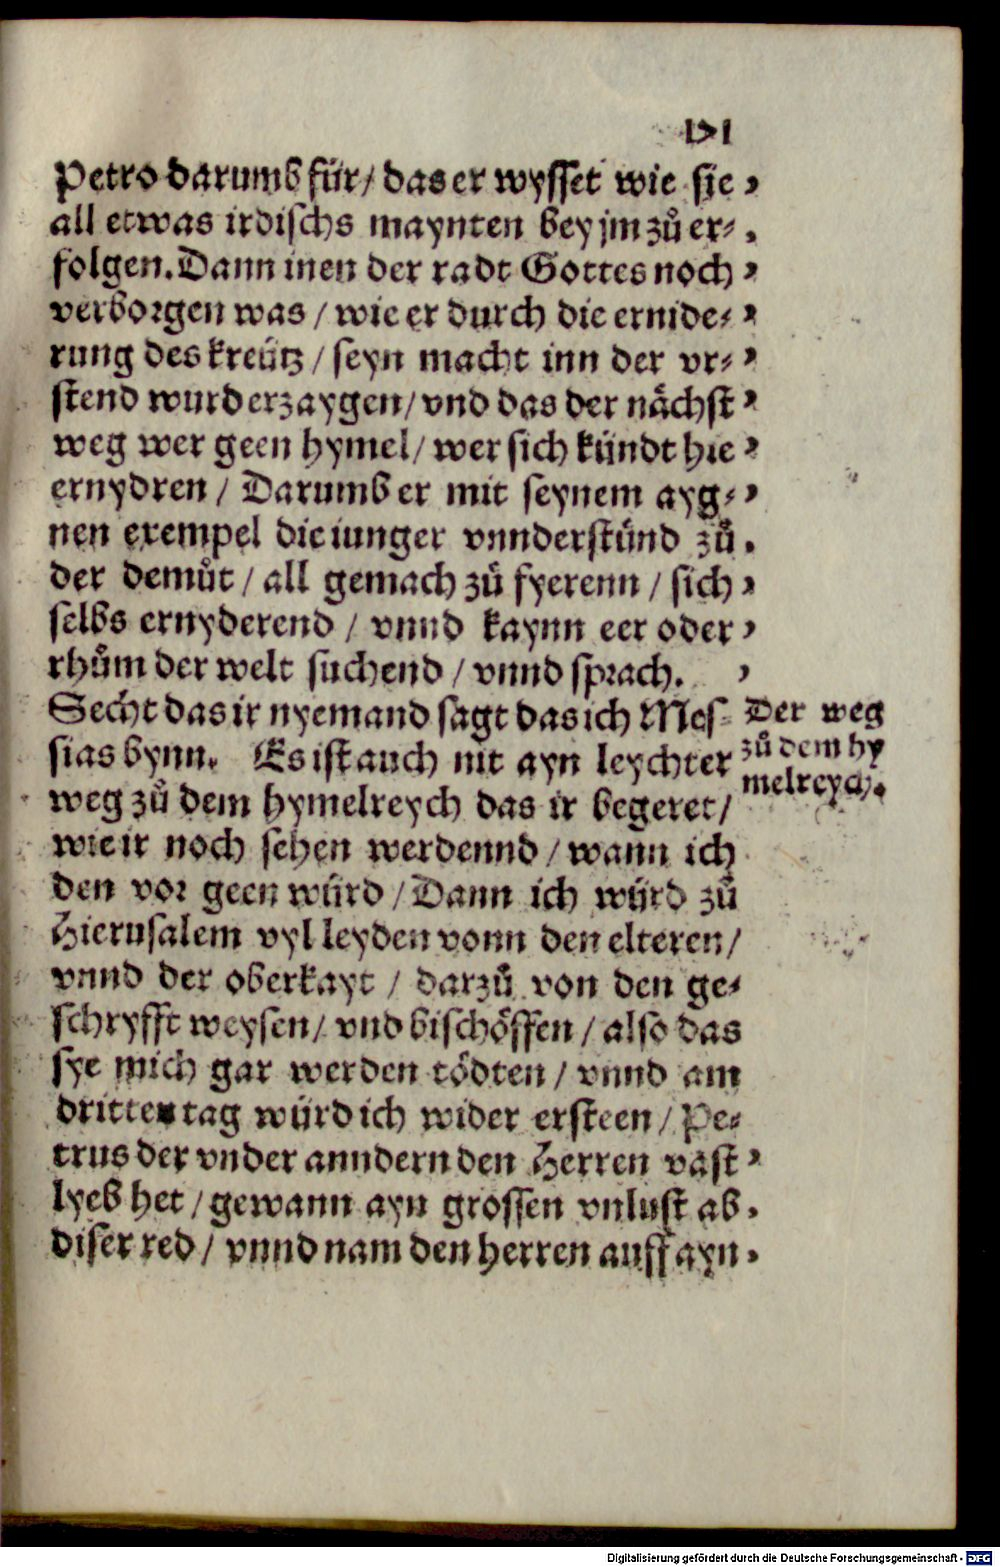 171
Petro darumb für/ das er wysset wie sie ,
all etwas irdischs maynten bey jm zů er⸗ ,
folgen. Dann inen der radt Gottes noch ,
verborgen was / wie er durch die ernide⸗ ,
rung des kreütz / seyn macht inn der vr⸗ ,
stend wurd erzaygen/ vnd das der nächst ,
weg wer geen hymel/ wer sich kündt hie ,
ernydren / Darumb er mit seynem ayg⸗ ,
nen exempel die iunger vnnderstünd zů ,
der demůt / all gemach zů fyerenn / sich ,
selbs ernyderend / vnnd kaynn eer oder ,
rhům der welt suchend / vnnd sprach. ,
Secht das ir nyemand sagt das ich Mes⸗
sias bynn. Es ist auch nit ayn leychter
weg zů dem hymelreych das ir begeret/
wie ir noch sehen werdennd / wann ich
den vor geen würd / Dann ich würd zů
Hierusalem vyl leyden vonn den elteren/
vnnd der oberkayt / darzů von den ge⸗
schryfft weysen/ vnd bischöffen / also das
sye mich gar werden tödten / vnnd am
dritten tag würd ich wider ersteen / Pe⸗
trus der vnder anndern den Herren vast ,
lyeb het / gewann ayn grossen vnlust ab ,
diser red / vnnd nam den herren auff ayn ,
Der weg
zů dem hy
melreych.
Digitalisierung gefördert durch die Deutsche Forschungsgemeinschaft - DFG